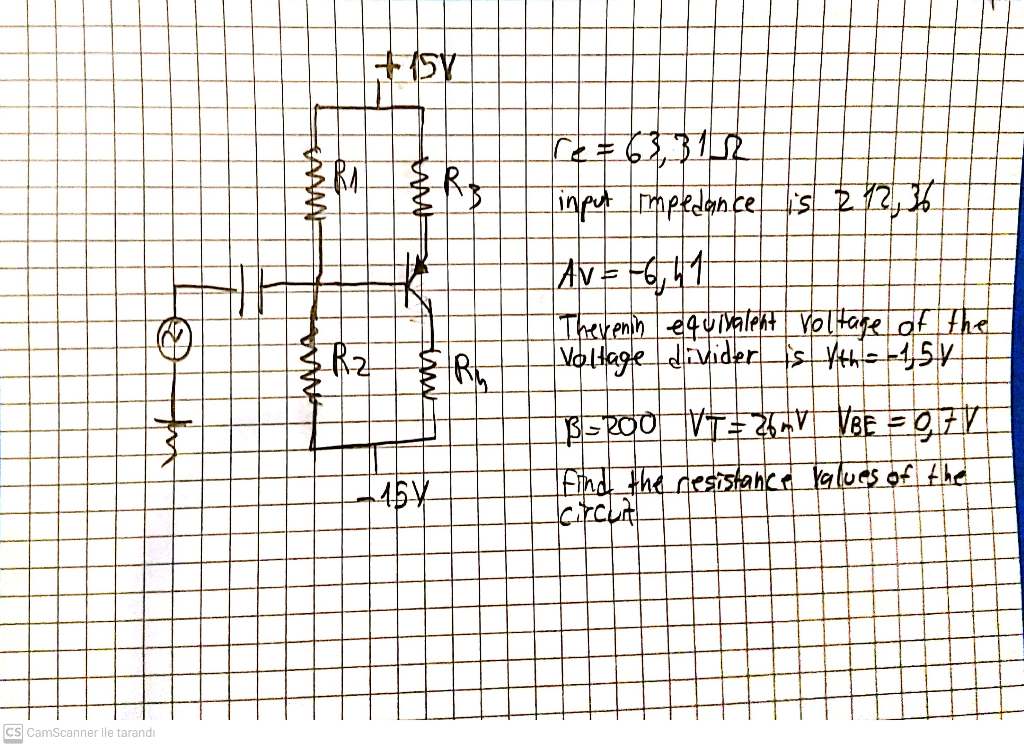 +15V
R1
R3
re = 63,31Ω
input impedance is 212,36
AV = -6,41
Thevenin equivalent voltage of the
voltage divider is Vth = -1,5V
R2
R4
β=200 VT=26mV VBE = 0,7V
Find the resistance values of the
circut
-15V
CS CamScanner ile tarandı